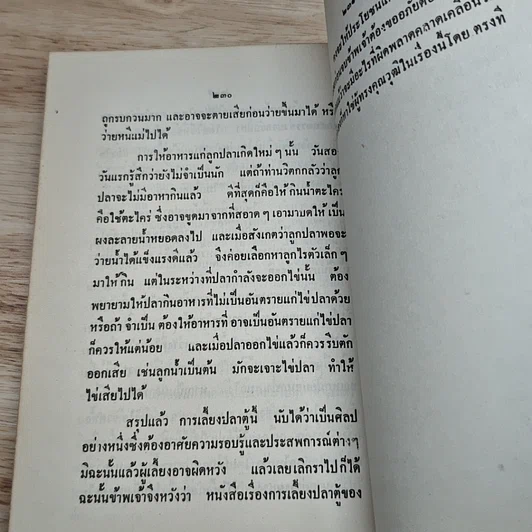 ๒๓๐
ถูกรบกวนมาก และอาจจะตายเสียก่อนว่ายขึ้นมาได้ หรือ
ว่ายหนีแม่ไปได้
การให้อาหารแก่ลูกปลาเกิดใหม่ ๆ นั้น วันสอง
วันแรกรู้สึกว่ายังไม่จำเป็นนัก แต่ถ้าท่านวิตกกลัวว่าลูก
ปลาจะไม่มีอาหากินแล้ว ดีที่สุดก็คือให้กินน้ำตะไคร่
คือใช้ตะไคร่ ซึ่งอาจขูดมาจากที่สอาด ๆ เอามาบดให้ เป็น
ผงละลายน้ำหยอดลงไป และเมื่อสังเกตว่าลูกปลาพอจะ
ว่ายน้ำได้แข็งแรงดีแล้ว จึงค่อยเลือกหาลูกไรตัวเล็ก ๆ
มาให้ กิน แต่ในระหว่างที่ปลากำลังจะออกไข่นั้น ต้อง
พยายามให้ปลากินอาหารที่ไม่เป็นอันตรายแก่ไข่ปลาด้วย
หรือถ้า จำเป็น ต้องให้อาหารที่ อาจเป็นอันตรายแก่ไข่ปลา
ก็ควรให้แต่น้อย และเมื่อปลาออกไข่แล้วก็ควรรีบตัก
ออกเสีย เช่นลูกน้ำเป็นต้น มักจะเจาะไข่ปลา ทำให้
ไข่เสียไปได้
สรุปแล้ว การเลี้ยงปลาตู้นี้ นับได้ว่าเป็นศิลป
อย่างหนึ่งซึ่งต้องอาศัยความรอบรู้และประสพการณ์ต่างๆ
มิฉะนั้นแล้วผู้เลี้ยงอาจผิดหวัง แล้วเลยเลิกราไปก็ได้
ฉะนั้นข้าพเจ้าจึงหวังว่า หนังสือเรื่องการเลี้ยงปลาตู้ของ
คงจะให้ประโยชน์แ
ข้าพเจ้าต้องขออภัย
มีอะไรที่ผิดพลาดคลาดเคลื่อน
ใช่ผู้ทรงคุณวุฒิในเรื่องนี้โดย ตรงที่